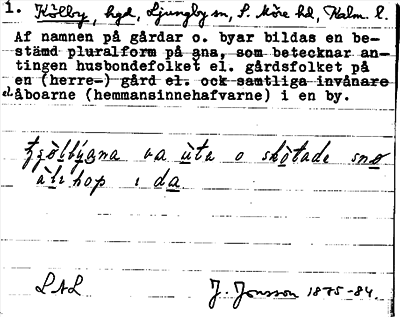 1. Kölby, hgd, Ljungby sn, S. Möre hd, Kalm. l.
Af namnen på gårdar o. byar bildas en be-
stämd pluralform på ana, som betecknar an-
tingen husbondefolket el. gårdsfolket på
en (herre-) gård el. ock samtliga invånare
el. åboarne (hemmansinnehafvarne) i en by.
va ùta o skòtade snø
i da
LAL J. Jonsson 1875-84.